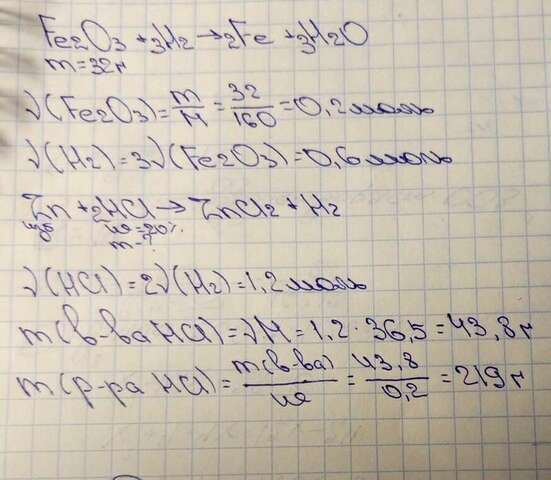 Fe2O3 + 3H2 → 2Fe + 3H2O
m = 32г
ν(Fe2O3) = m/M = 32/160 = 0,2 моль
ν(H2) = 3ν(Fe2O3) = 0,6 моль
Zn + 2HCl → ZnCl2 + H2
изб ω = 20%
m - ?
ν(HCl) = 2ν(H2) = 1,2 моль
m(в-ва HCl) = νM = 1,2 · 36,5 = 43,8 г
m(р-ра HCl) = m(в-ва)/ω = 43,8/0,2 = 219 г